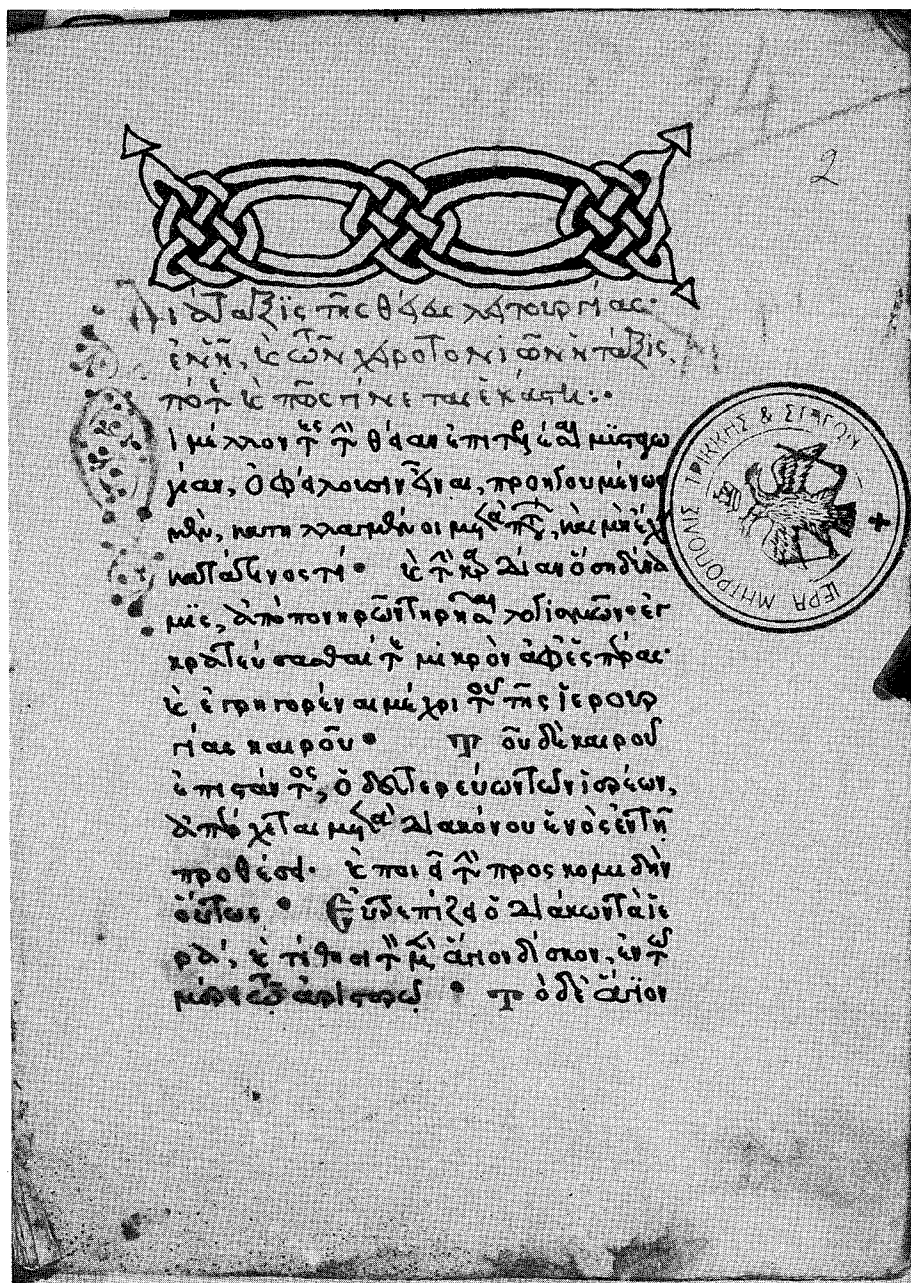 2
Διάταξις τῆς θείας λειτουργίας·
ἐν ᾗ, καὶ τῶν χειροτονιῶν ἡ τάξις,
πότε καὶ πῶς γίνεται ἑκάστη:·
Οἱ μέλλοντες τὴν θείαν ἐπιτελέσαι μυσταγω
γίαν, ὀφείλουσιν εἶναι, προηγουμένως
μὲν, κατηλλαγμένοι μετὰ πάντων, καὶ μὴ ἔχειν
κατά τινος τί· καὶ τὴν καρδίαν ὅση δύνα
μις, ἀπὸ πονηρῶν τηρῆσαι λογισμῶν· ἐγ
κρατεύσασθαί τε μικρὸν ἀφ' ἑσπέρας·
καὶ ἐγρηγορέναι μέχρι τοῦ τῆς ἱερουρ
γίας καιροῦ· Τοῦ δὲ καιροῦ
ἐπιστάντος, ὁ δευτερεύων τῶν ἱερέων,
ἀπέρχεται μετὰ διακόνου ἑνὸς ἐν τῇ
προθέσει· καὶ ποιεῖ τὴν προσκομιδὴν
οὕτως· Εὐτρεπίζει ὁ διάκων τὰ ἱε
ρά, καὶ τίθησι τὸν μὲν ἅγιον δίσκον, ἐν τῷ
μέρει τῷ ἀριστερῷ· τὸ δὲ ἅγιον
ΙΕΡΑ ΜΗΤΡΟΠΟΛΙΣ ΤΡΙΚΚΗΣ & ΣΤΑΓΩΝ